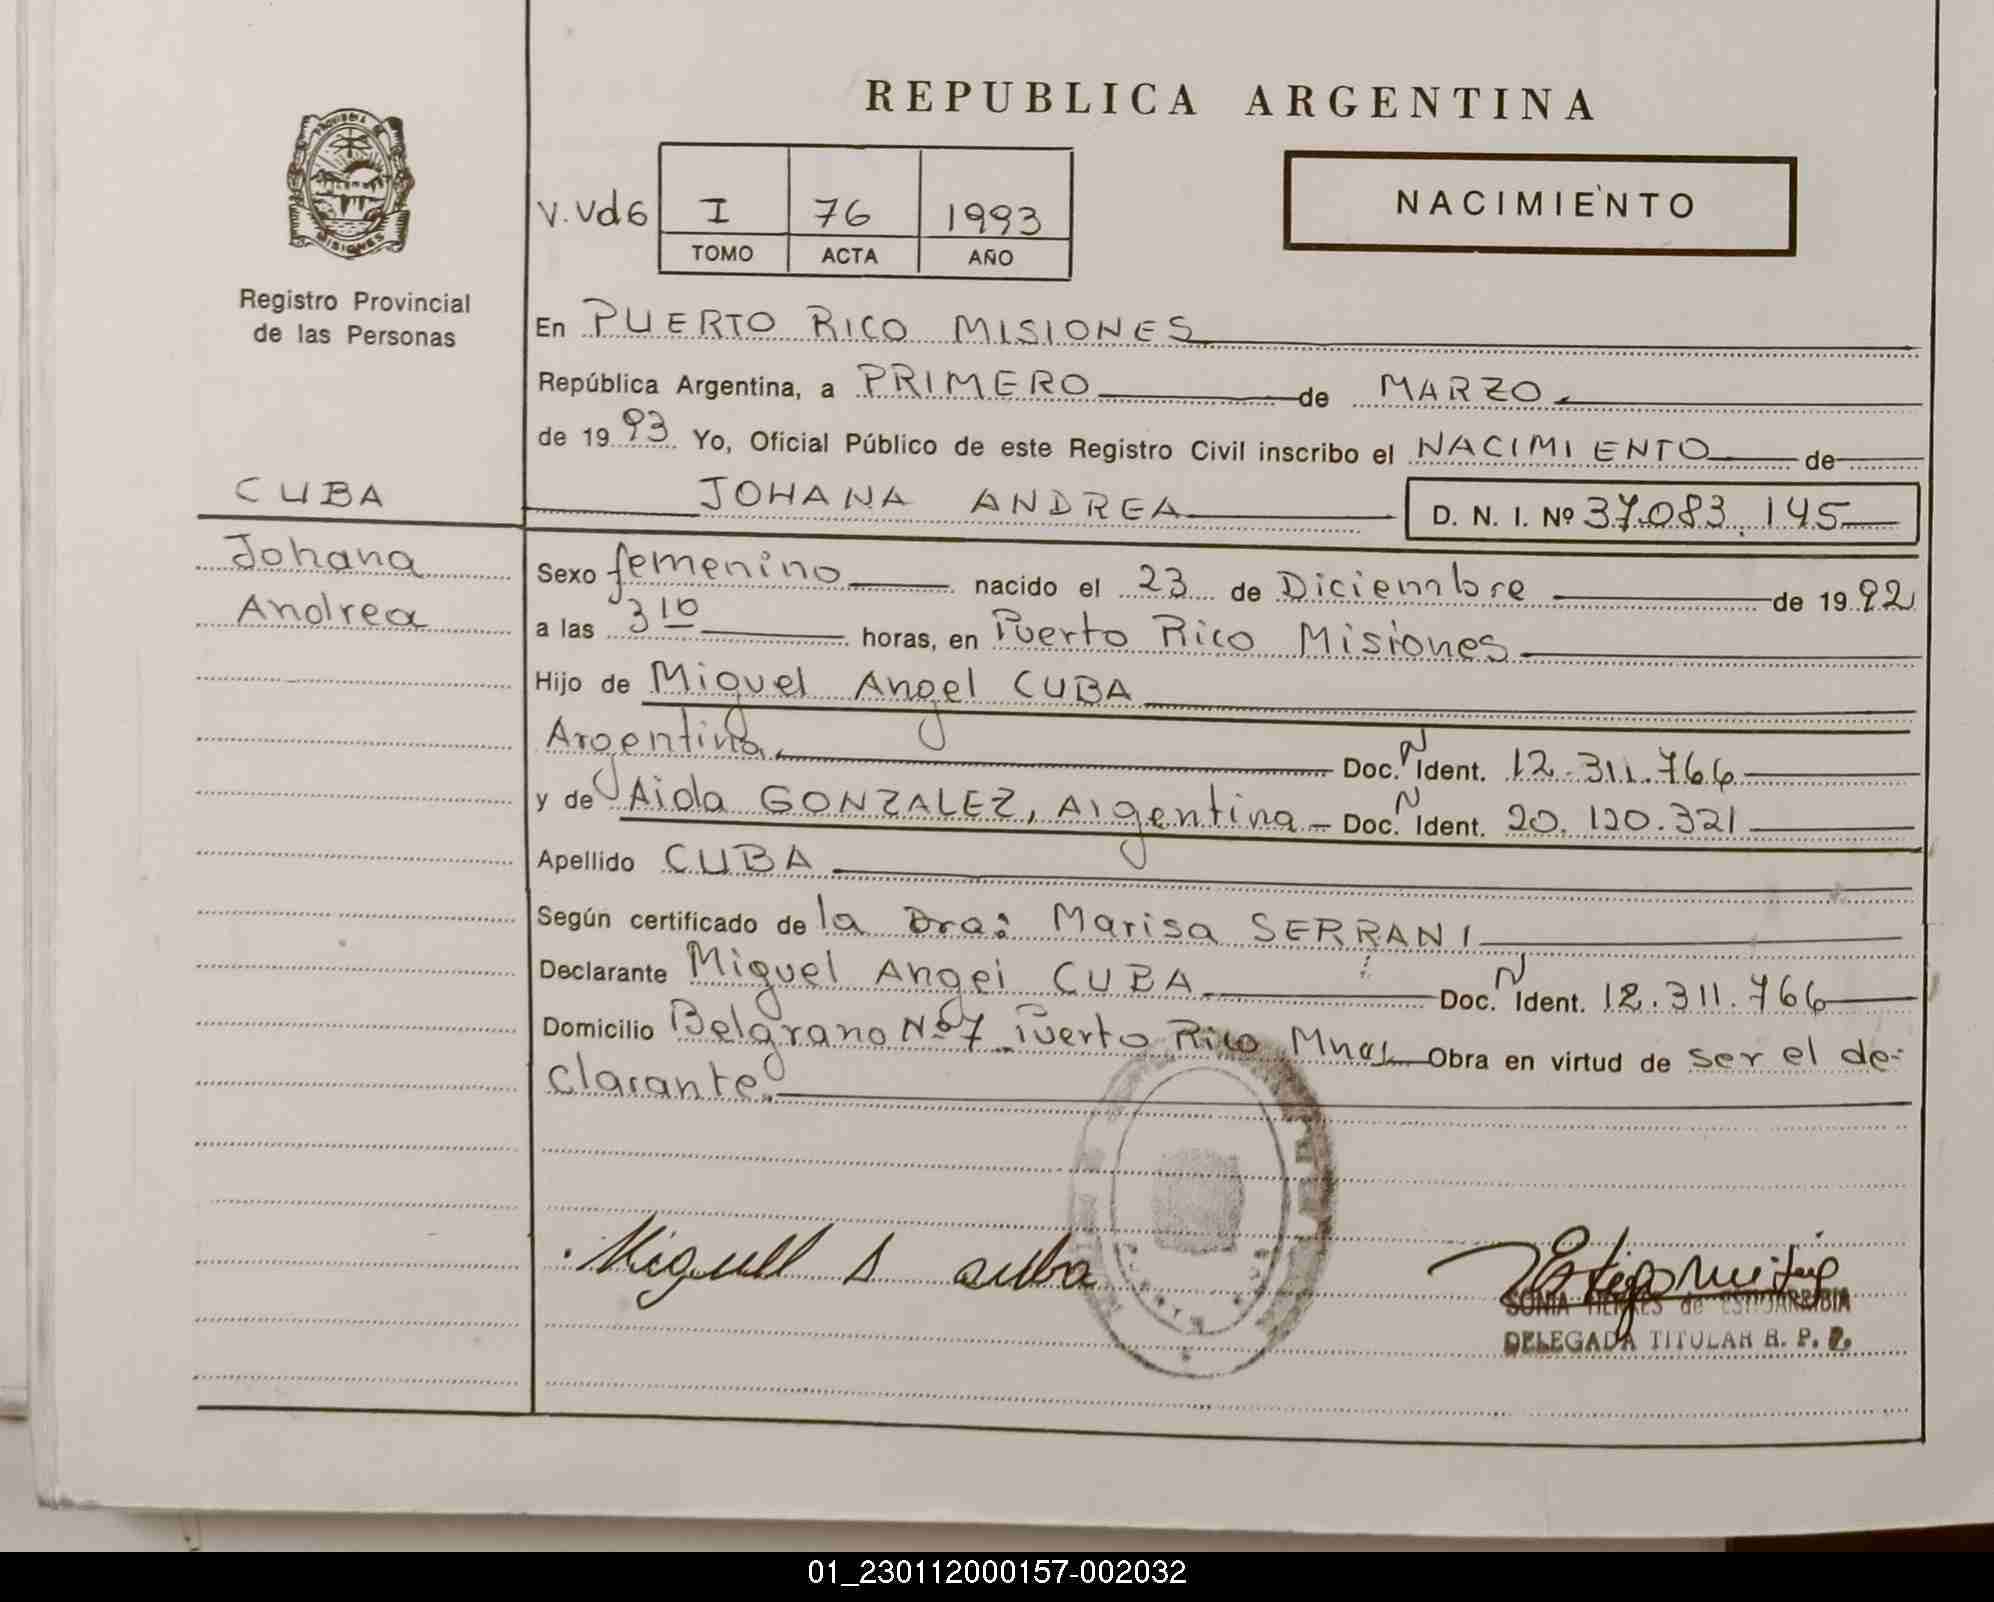 REPUBLICA ARGENTINA
PROVINCIA DE
MISIONES
Registro Provincial
de las Personas
V. Vd6 I 76 1993
TOMO ACTA AÑO
NACIMIENTO
En PUERTO RICO MISIONES
República Argentina, a PRIMERO de MARZO
de 1993 Yo, Oficial Público de este Registro Civil inscribo el NACIMIENTO de
CUBA JOHANA ANDREA D. N. I. Nº 37.083.145
Johana
Andrea
Sexo femenino nacido el 23 de Diciembre de 1992
a las 3 10 horas, en Puerto Rico Misiones
Hijo de Miguel Angel CUBA
Argentina Doc. N Ident. 12.311.766
y de Aida GONZALEZ, Argentina - Doc. N Ident. 20.120.321
Apellido CUBA
Según certificado de la Dra: Marisa SERRANI
Declarante Miguel Angel CUBA Doc. N Ident. 12.311.766
Domicilio Belgrano Nº 7 Puerto Rico Mnes Obra en virtud de ser el de-
clarante.
Miguel A Cuba
SONIA de
DELEGADA TITULAR R. P. P.
01_230112000157-002032